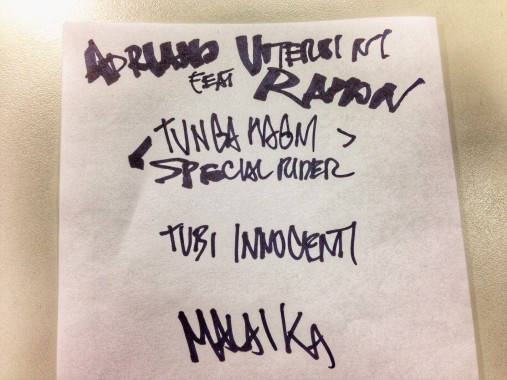 ADRIANO VITERBINI
FEAT RAMON
< TUNGA MAGNI >
SPECIAL RIDER
TUBI INNOCENTI
MALAIKA